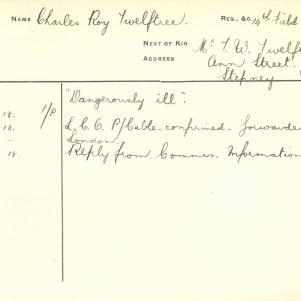 NAME Charles Roy Twelftree. REG., &C. 14th Field
NEXT OF KIN Mr T. W. Twelf
ADDRESS Ann Street.
Stepney
"Dangerously ill".
18. 1/P
18. L.C.O. P/Cable confirmed - forwarde
- London
18. Reply from Commes. Information